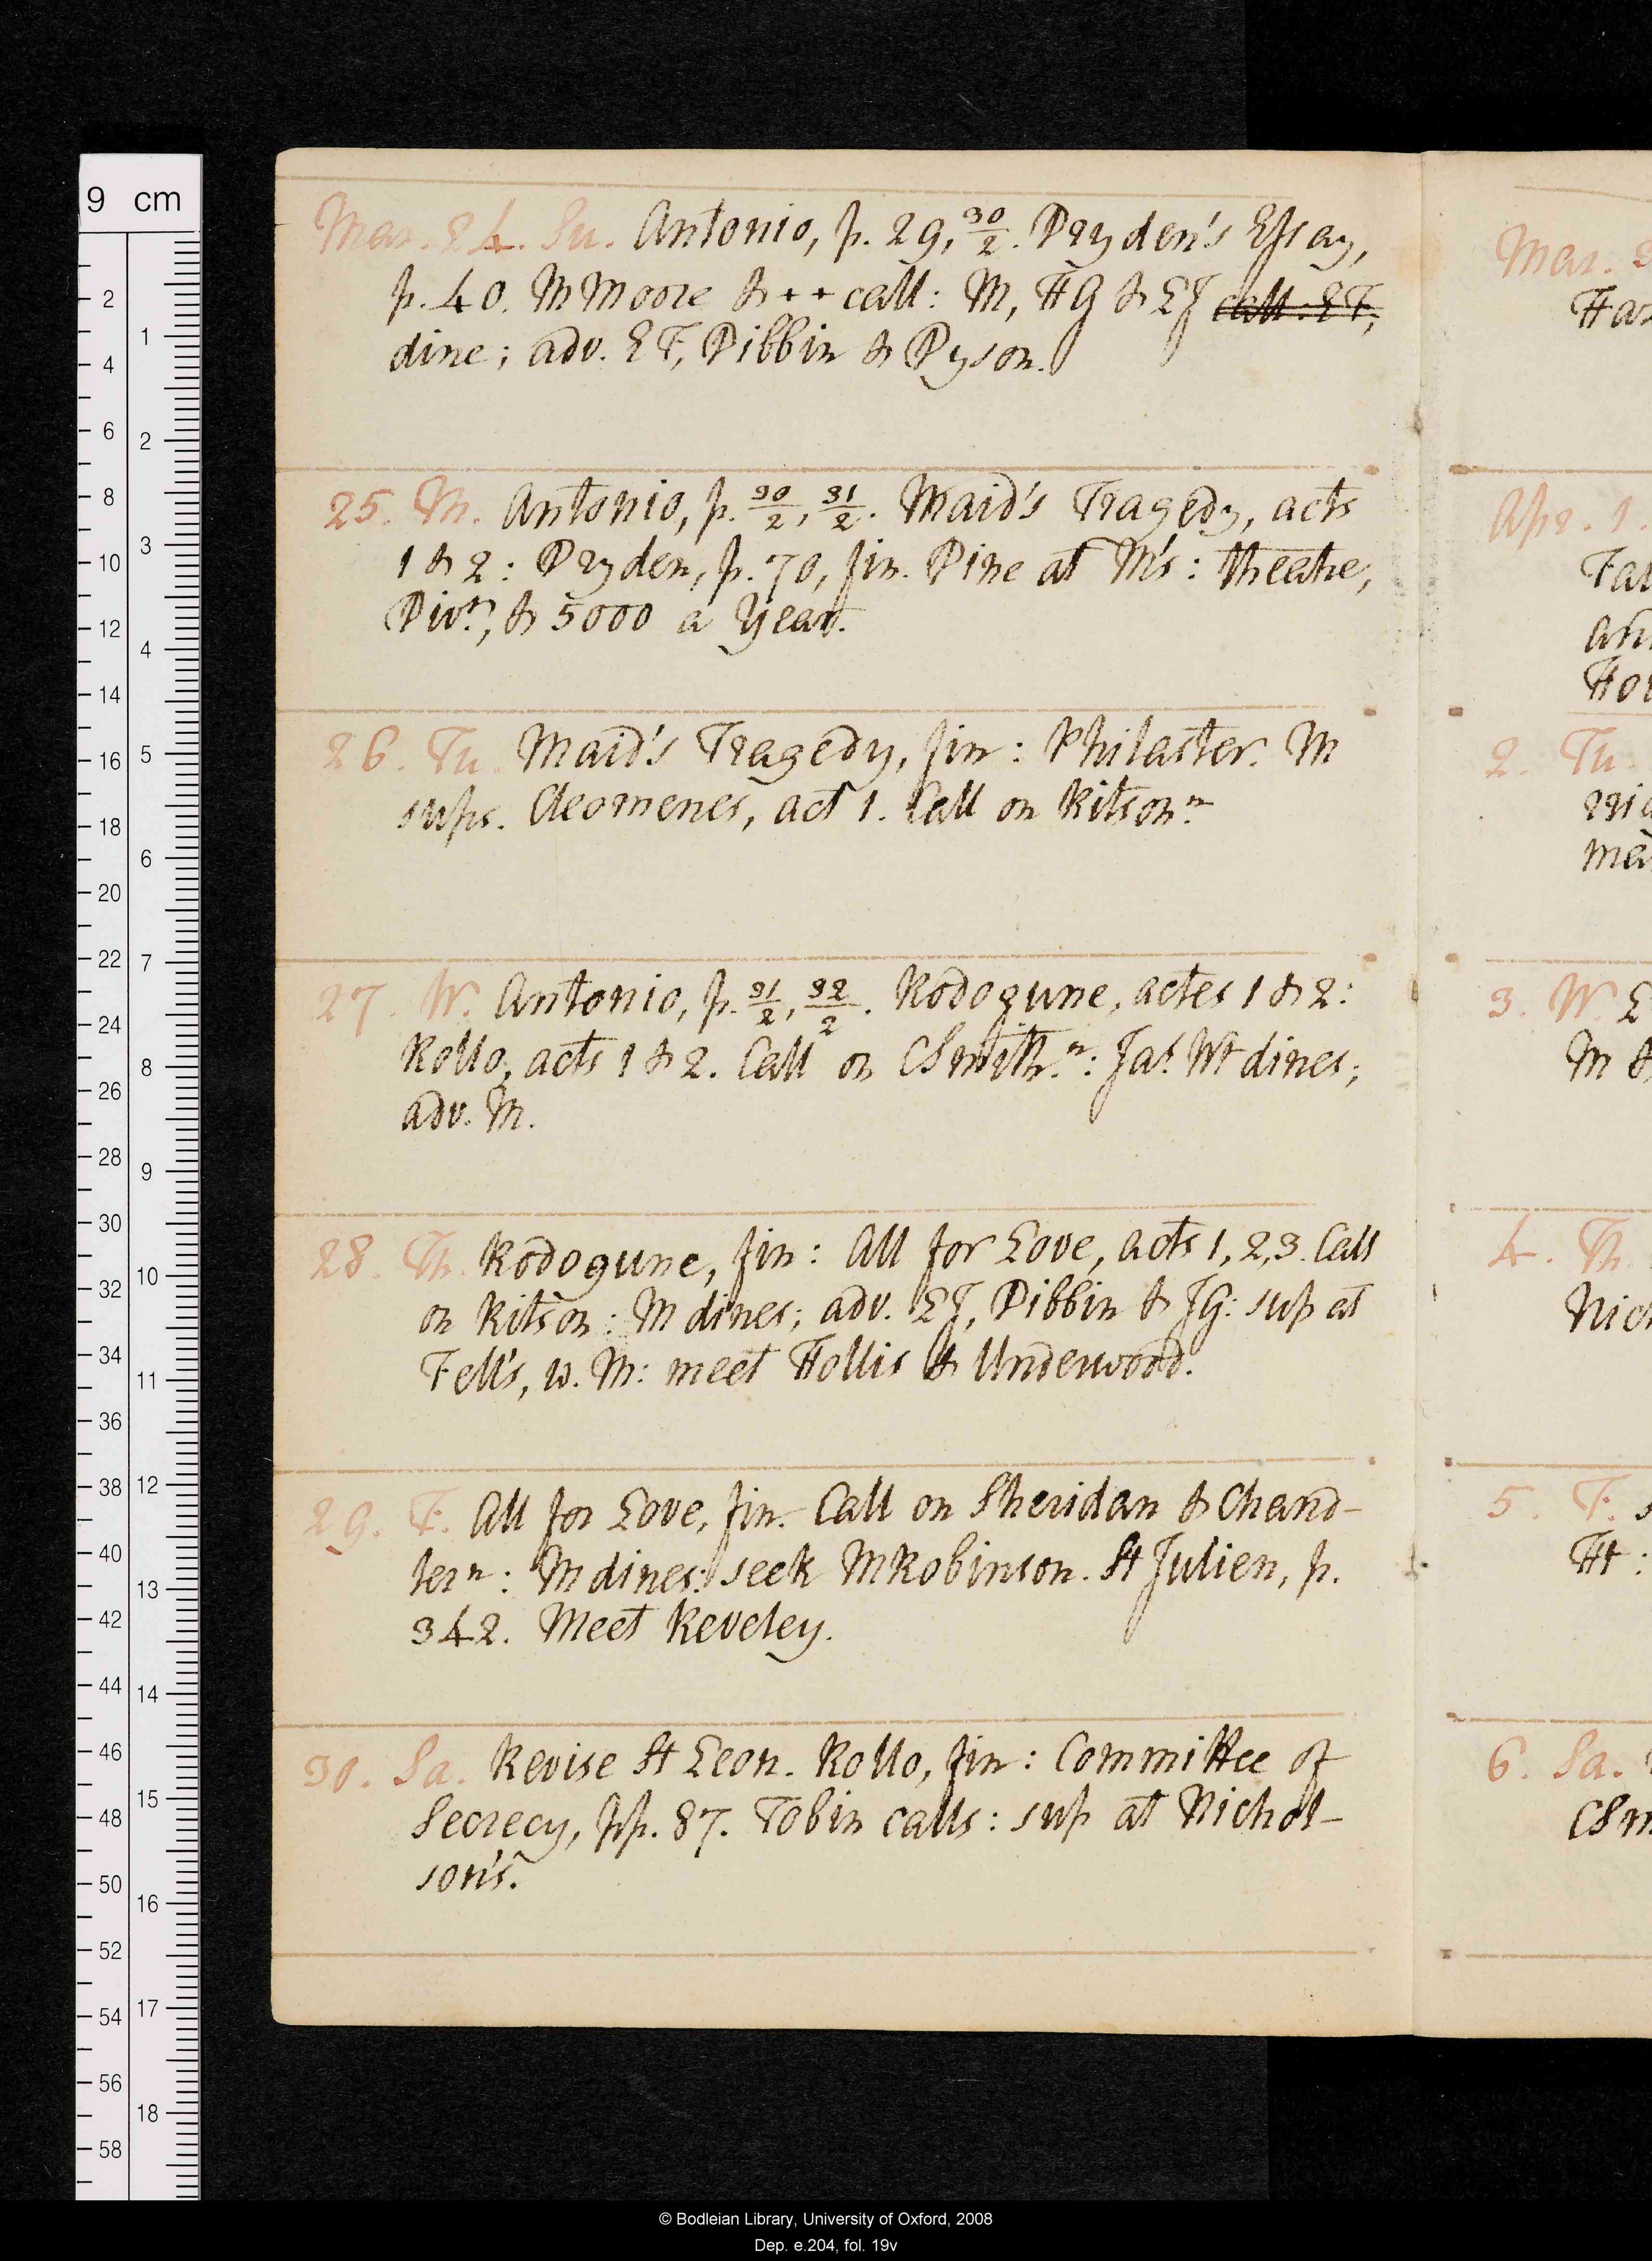 Mar. 24. Su. Antonio, p. 29, 30/2. Dryden's Essay,
p. 40. M Moore & + + call: M, HG & LJ call: EF,
dine; adv. EF, Dibbin & Dyson.
25. M. Antonio, p. 30/2, 31/2. Maid's Tragedy, acts
1 & 2: Dryden, p. 70, fin. Dine at M's: theatre,
Divn, & 5000 a Year.
26. Tu. Maid's Tragedy, fin: Philaster. M
sups. Cleomenes, act 1. Call on Ritson n.
27. W. Antonio, p. 31/2, 32/2. Rodogune, actes 1 & 2:
Rollo, acts 1 & 2. Call on CSmith n: Jas. Wt dines;
adv. M.
28. Th. Rodogune, fin: All for Love, acts 1, 2, 3. Call
on Ritson: M dines; adv. LJ, Dibbin & JG: sup at
Fell's, w. M: meet Hollis & Underwood.
29. F. All for Love, fin. Call on Sheridan & Chand-
ler n: M dines: seek MRobinson. St Julien, p.
342. Meet Reveley.
30. Sa. Revise St Leon. Rollo, fin: Committee of
Secrecy, pp. 87. Tobin calls: sup at Nichol-
son's.
Mar.
Apr. 1.
2. Tu.
3. W.
M &
4. Th.
5. F.
Ht:
6. Sa.
9 cm
2
4
6
8
10
12
14
16
18
20
22
24
26
28
30
32
34
36
38
40
42
44
46
48
50
52
54
56
58
1
2
3
4
5
6
7
8
9
10
11
12
13
14
15
16
17
18
© Bodleian Library, University of Oxford, 2008
Dep. e.204, fol. 19v